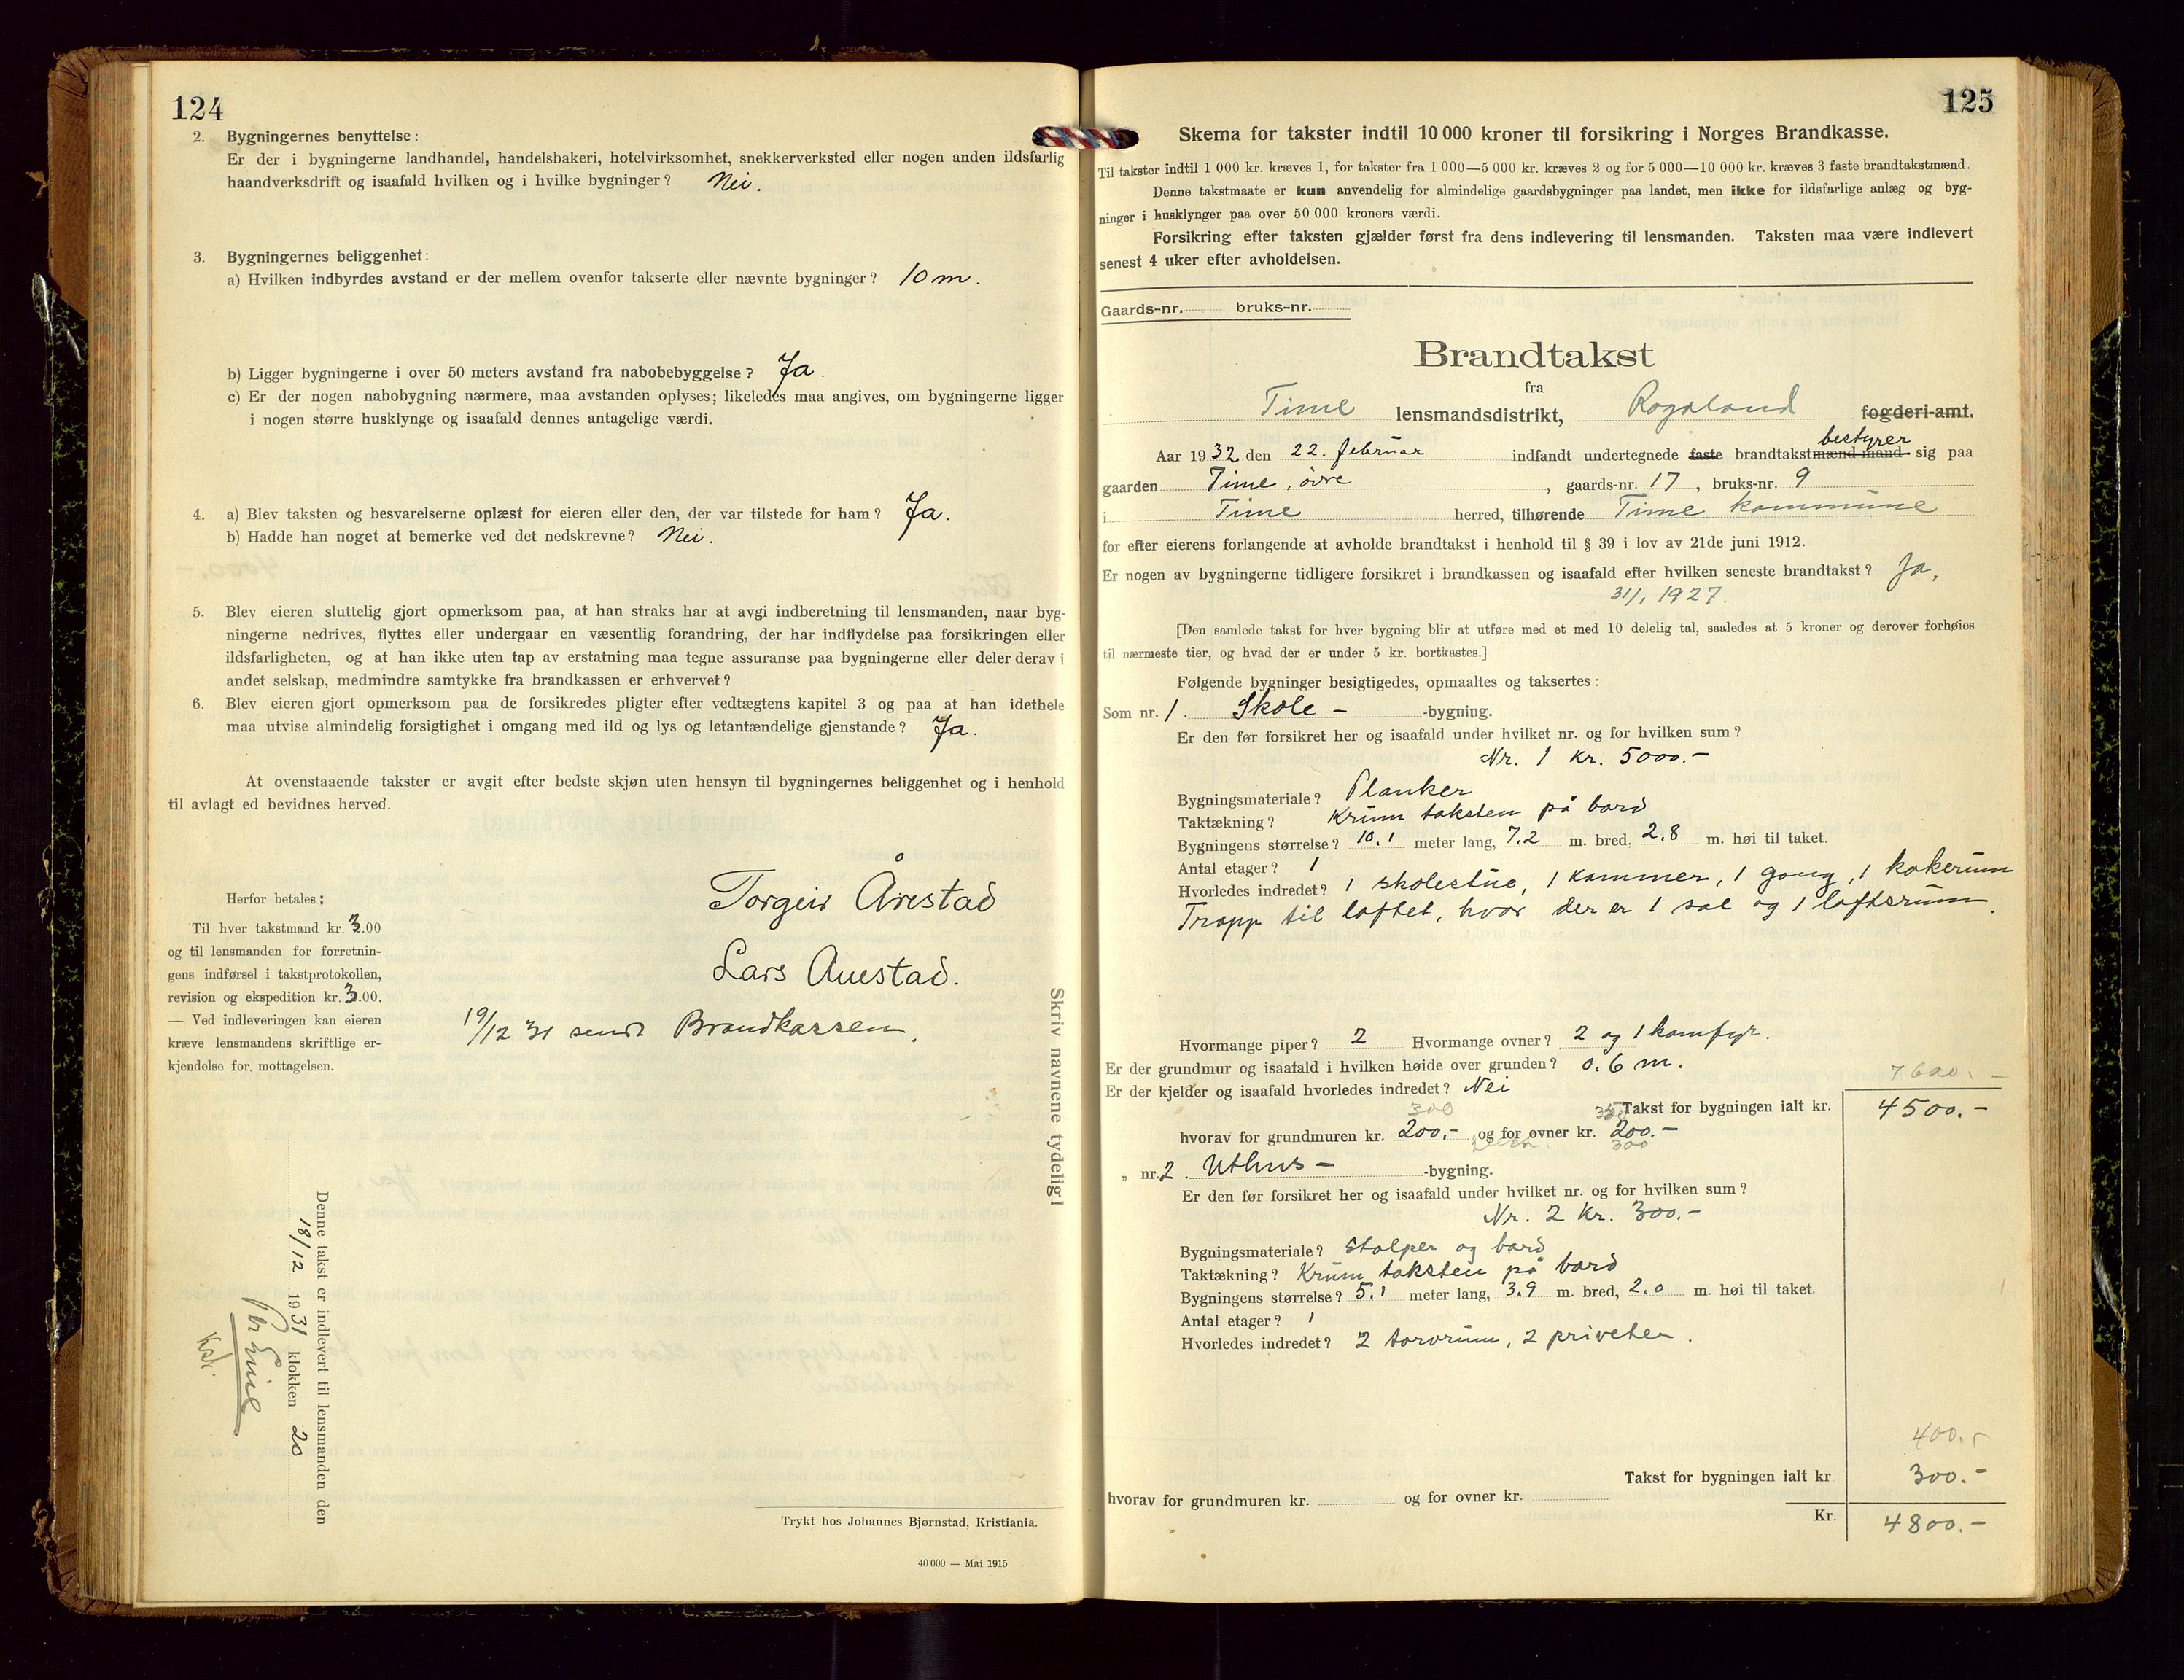 124
2. Bygningernes benyttelse:
Er der i bygningerne landhandel, handelsbakeri, hotelvirksomhet, snekkerverksted eller nogen anden ildsfarlig
haandverksdrift og isaafald hvilken og i hvilke bygninger? Nei.
3. Bygningernes beliggenhet:
a) Hvilken indbyrdes avstand er der mellem ovenfor takserte eller nævnte bygninger? 10 m.
b) Ligger bygningerne i over 50 meters avstand fra nabobebyggelse? Ja.
c) Er der nogen nabobygning nærmere, maa avstanden oplyses; likeledes maa angives, om bygningerne ligger
i nogen større husklynge og isaafald dennes antagelige værdi.
4. a) Blev taksten og besvarelserne oplæst for eieren eller den, der var tilstede for ham? Ja.
b) Hadde han noget at bemerke ved det nedskrevne? Nei.
5. Blev eieren sluttelig gjort opmerksom paa, at han straks har at avgi indberetning til lensmanden, naar byg-
ningerne nedrives, flyttes eller undergaar en væsentlig forandring, der har indflydelse paa forsikringen eller
ildsfarligheten, og at han ikke uten tap av erstatning maa tegne assuranse paa bygningerne eller deler derav i
andet selskap, medmindre samtykke fra brandkassen er erhvervet?
6. Blev eieren gjort opmerksom paa de forsikredes pligter efter vedtægtens kapitel 3 og paa at han idethele
maa utvise almindelig forsigtighet i omgang med ild og lys og letantændelige gjenstande? Ja.
At ovenstaaende takster er avgit efter bedste skjøn uten hensyn til bygningernes beliggenhet og i henhold
til avlagt ed bevidnes herved.
Herfor betales:
Til hver takstmand kr. 3.00
og til lensmanden for forretnin-
gens indførsel i takstprotokollen,
revision og ekspedition kr. 3.00.
— Ved indleveringen kan eieren
kræve lensmandens skriftlige er-
kjendelse for mottagelsen.
Torgeir Årestad
Lars Auestad.
19/12 31 sendt Brandkassen.
Skriv navnene tydelig!
Denne takst er indlevert til lensmanden den
18/12 1931 klokken 20
Trykt hos Johannes Bjørnstad, Kristiania.
40 000 — Mai 1915
125
Skema for takster indtil 10 000 kroner til forsikring i Norges Brandkasse.
Til takster indtil 1 000 kr. kræves 1, for takster fra 1 000—5 000 kr. kræves 2 og for 5 000—10 000 kr. kræves 3 faste brandtakstmænd.
Denne takstmaate er kun anvendelig for almindelige gaardsbygninger paa landet, men ikke for ildsfarlige anlæg og byg-
ninger i husklynger paa over 50 000 kroners værdi.
Forsikring efter taksten gjælder først fra dens indlevering til lensmanden. Taksten maa være indlevert
senest 4 uker efter avholdelsen.
Gaards-nr. bruks-nr.
Brandtakst
fra
Time lensmandsdistrikt, Rogaland fogderi-amt.
bestyrer
Aar 1932 den 22. februar indfandt undertegnede faste brandtakstmænd-mand sig paa
gaarden Time, övre, gaards-nr. 17, bruks-nr. 9
i Time herred, tilhørende Time kommune
for efter eierens forlangende at avholde brandtakst i henhold til § 39 i lov av 21de juni 1912.
Er nogen av bygningerne tidligere forsikret i brandkassen og isaafald efter hvilken seneste brandtakst? Ja,
31/1 1927.
[Den samlede takst for hver bygning blir at utføre med et med 10 delelig tal, saaledes at 5 kroner og derover forhøies
til nærmeste tier, og hvad der er under 5 kr. bortkastes.]
Følgende bygninger besigtigedes, opmaaltes og taksertes:
Som nr. 1. Skole - -bygning.
Er den før forsikret her og isaafald under hvilket nr. og for hvilken sum?
Nr. 1 kr. 5000.-
Bygningsmateriale? Planker
Taktækning? Krum taksten på bord
Bygningens størrelse? 10.1 meter lang, 7.2 m. bred, 2.8 m. høi til taket.
Antal etager? 1
Hvorledes indredet? 1 skolestue, 1 kammer, 1 gang, 1 kokerum
Trapp til loftet, hvor der er 1 sal og 1 loftsrum.
Hvormange piper? 2 Hvormange ovner? 2 og 1 komfyr.
Er der grundmur og isaafald i hvilken høide over grunden? 0.6 m.
Er der kjelder og isaafald hvorledes indredet? Nei
7600.-
300
Takst for bygningen ialt kr. 4500.-
hvorav for grundmuren kr. 200.- og for ovner kr. 200.-
300
„ nr. 2. Uthus - -bygning.
Er den før forsikret her og isaafald under hvilket nr. og for hvilken sum?
Nr. 2 Kr. 300.-
Bygningsmateriale? Stolper og bord
Taktækning? Krum taksten på bord
Bygningens størrelse? 5.1 meter lang, 3.9 m. bred, 2.0 m. høi til taket.
Antal etager? 1
Hvorledes indredet? 2 torvrum, 2 priveter.
400.-
Takst for bygningen ialt kr 300.-
hvorav for grundmuren kr. og for ovner kr.
Kr. 4800.-